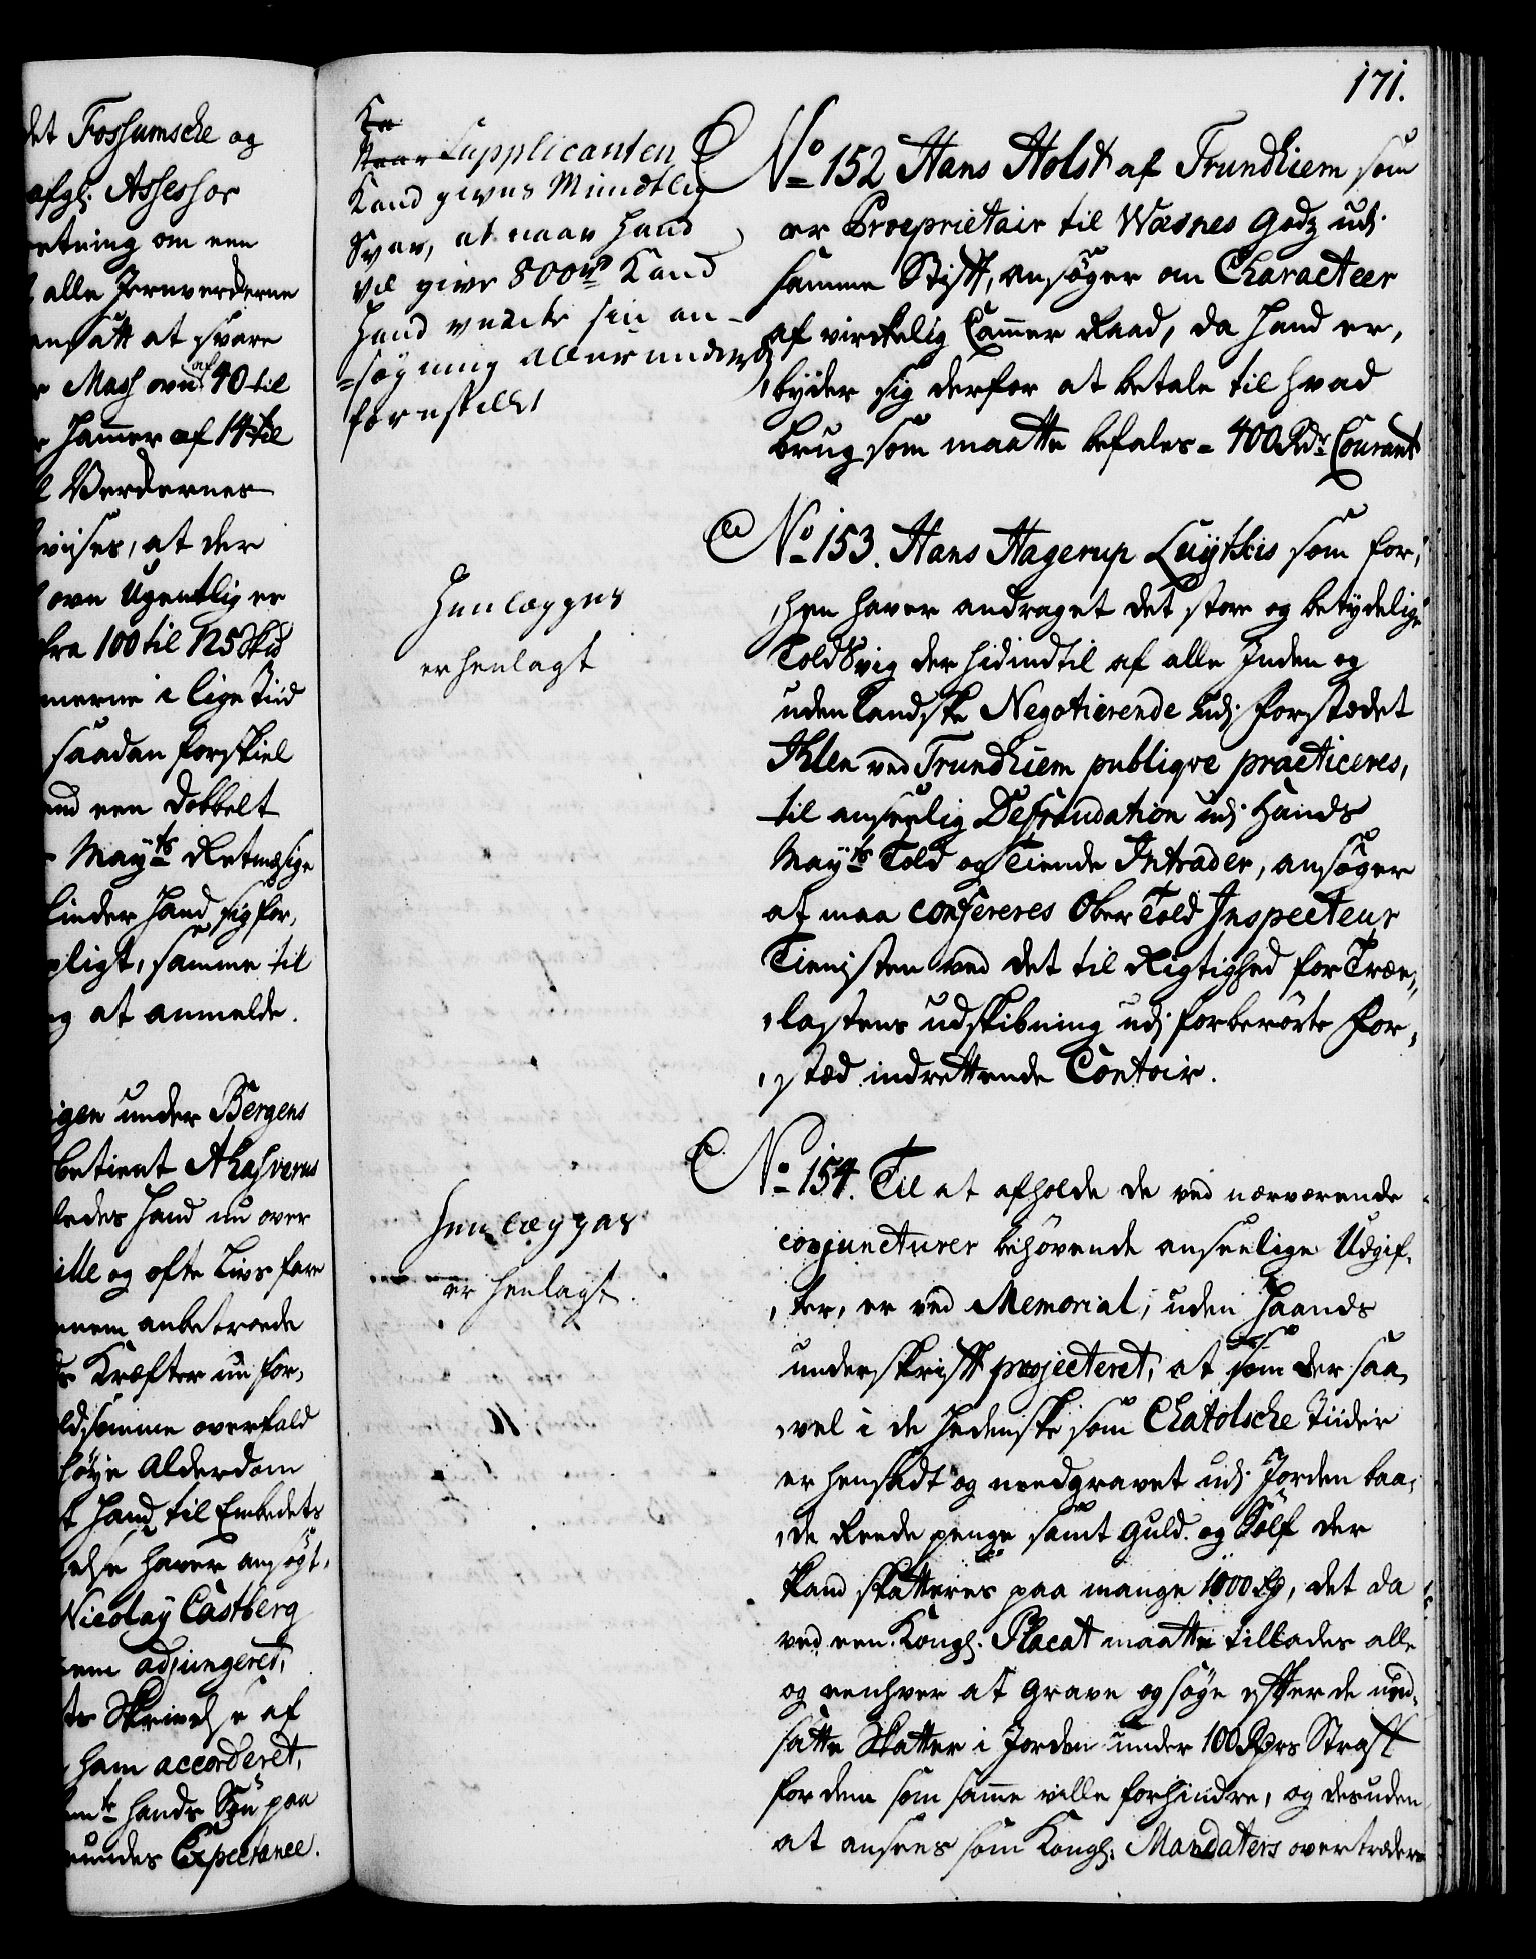 det Fossumsche og
afgl. Assessor
retning om een
alle Jernverckerne
ensatt at svare
Mass ovn af 40 til
Hammer af 14 til
Verckernes
viises, at der
ovn Ugentlig er
fra 100 til 125 Skd
merne i lige Tiid
saadan forskiel
end een dobbelt
Mayts Retmæssige
finder hand sig for,
pligt, samme til
og at anmelde.
igen under Bergens
betient Ahasverus
ledes hand nu over
ille og ofte Livs fare
enem anbetroede
Kræfter nu for,
ldsomme overfald
høye Alderdom
t hand til Embedets
else haver ansøgt,
Nicolay Castberg
em adjungeret,
ts Skrivelse af
ham accorderet,
hands Søn paa
Expectance.
171.
Supplicanten
Kand gives Mundtlig
Svar, at naar hand
vil give 800 rd Kand
hand vente sin an-
=søgning allerunderd:
forestillet
No 152 Hans Holst af Trundhiem som
er Proeprietair til Wæsnes Godz udj
samme Stift, ansøger om Characteer
af virckelig Cammer Raad, da hand er,
,byder sig derfor at betale til hvad
brug som maatte befales - 400 Rdr Courant
Henlægges
er henlagt
No 153. Hans Hagerup Luytkis som for,
,hen haver andraget det store og betydelige
Told Svig der hidindtil af alle Inden og
uden Landske Negotierende udj forstædet
Ihlen ved Trundhiem publiqve practiceres,
til anseelig Defraudation udj Hands
Mayts Told og Tiende Intrader, ansøger
at maa confereres Ober Told Inspecteur
Tienisten ved det til Rigtighed for Træ,
,lastens udskibning udj forberørte For,
,stæd indrettende Contoir.
Henlægges
er henlagt.
No 154. Til at afholde de ved nærværende
conjuncturer behøvende anseelige Udgif,
,ter, er ved Memorial, uden Haands
underskrift projecteret, at som der saa,
,vel i de Hedenske som Chatolsche Tiider
er hensadt og needgravet udj Jorden baa,
,de Reede penge samt Guld og Sølf der
kand skatteres paa mange 1000 Rd, det da
ved een Kongl. Placat maatte tillades alle
og eenhver at Grave og søge efter de need,
satte Skatter i Jorden under 100 Rdrs Straff
for dem som samme ville forhindre, og desuden
at ansees som Kongl. Mandaters overtrædere